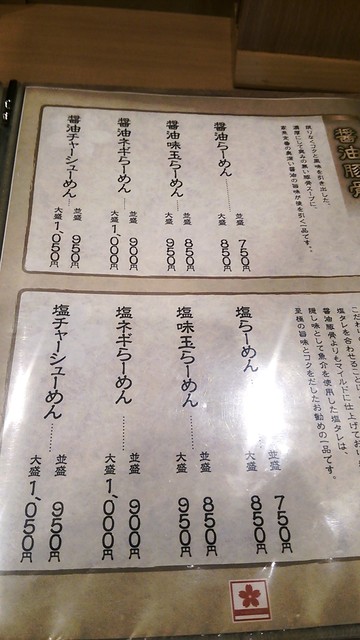 醤油豚骨
限りなくコクと風味を引き出した、
濃厚にして臭みの無い豚骨スープに、
醤油らーめん
並盛 750円
大盛 850円
醤油味玉らーめん
並盛 850円
大盛 950円
醤油ネギらーめん
並盛 900円
大盛 1,000円
醤油チャーシューめん
並盛 950円
大盛 1,050円
塩タレを合わせることに
醤油豚骨よりもマイルドに仕上げており
隠し味として魚介を使用した塩タレは、
至極の旨味とコクをだしたお勧めの一品です。
塩らーめん
並盛 750円
大盛 850円
塩味玉らーめん
並盛 850円
大盛 950円
塩ネギらーめん
並盛 900円
大盛 1,000円
塩チャーシューめん
並盛 950円
大盛 1,050円